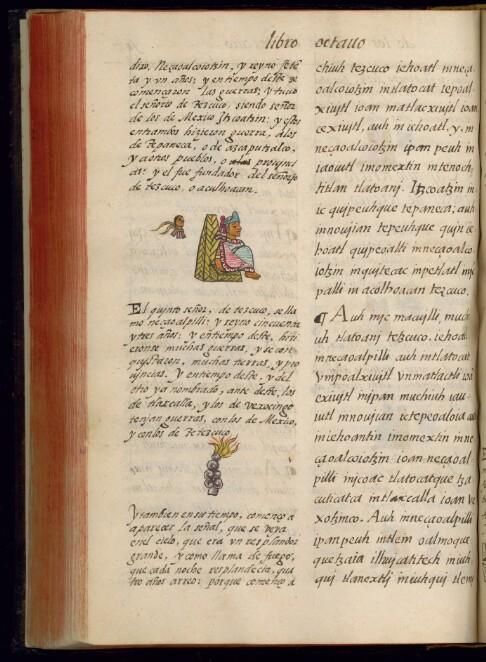 libro octauo
dixo, Neçaoalcoiotzin, y reyno sete
ta y vn años: y entiempo deste se
començaron las guerras, y tuuo
el señorio de tezcuco, siendo señor
de los de Mexico Itzcoatzin: y estos
entrambos hizieron guerra, a los
de tepaneca, o de azcaputzalco,
y a otros pueblos, o proujncias
y el fue fundador del señorio
de tezcuco, o aculhoacan.
El quinto señor, de tezcuco, se lla
mo neçaoalpilli: y reyno cincuenta
y tres años: y entiempo deste, hizi
eronse muchas guerras, y se con
quistaron, muchas tierras, y pro
ujncias. Y entiempo deste, y del
otro ya nombrado, ante deste, los
de tlaxcalla, y los de vexocingo
tenjan guerras, con los de Mexico,
y con los de tetezcuco.
Y tambien en su tiempo, començo a
aparecer la señal, que se veya
enel cielo, que era vn resplandor
grande, y como llama de fuego,
que cada noche resplandecia, qua
tro años arreo: porque começo a
chiuh tezcuco iehoatl mneça
oalcoiotzin in tlatocat iepoal
xiujtl ioan matlacxiujtl ioan
cexiujtl, auh in iehoatl. y. m
neçaoalcoiotzin ipan peuh in
iaoiutl imomextin in tenoch
titlan tlatoanj. Itzcoatzin in
ic qujpeuhque tepaneca; auh
mnoujian tepeuhque qujn ie
hoatl qujpeoalti mneçaoalco
iotzin inqujtecac inpetlatl inj
palli in acolhoacan tezcuco.
¶ Auh injc macujlli, muchi
uh tlatoanj tetzcuco. iehoatl
mneçaoalpilli auh intlatocat
vmpoalxiujtl vnmatlactli ioan
exiujtl injpan muchiuh iau
iutl mnoujian ictepeoaloia auh
in iehoantin imomextin in ne
çaoalcoiotzin ioan neçaoal
pilli injcoac tlatocatque tza
cuticatca in tlaxcalla ioan ve
xotzinco. Auh mneçaoalpilli
ipan peuh intlein oalmoque
quetzaia ilhujcatitech iniuh
quj tlanextlj iniuhquj tlemj